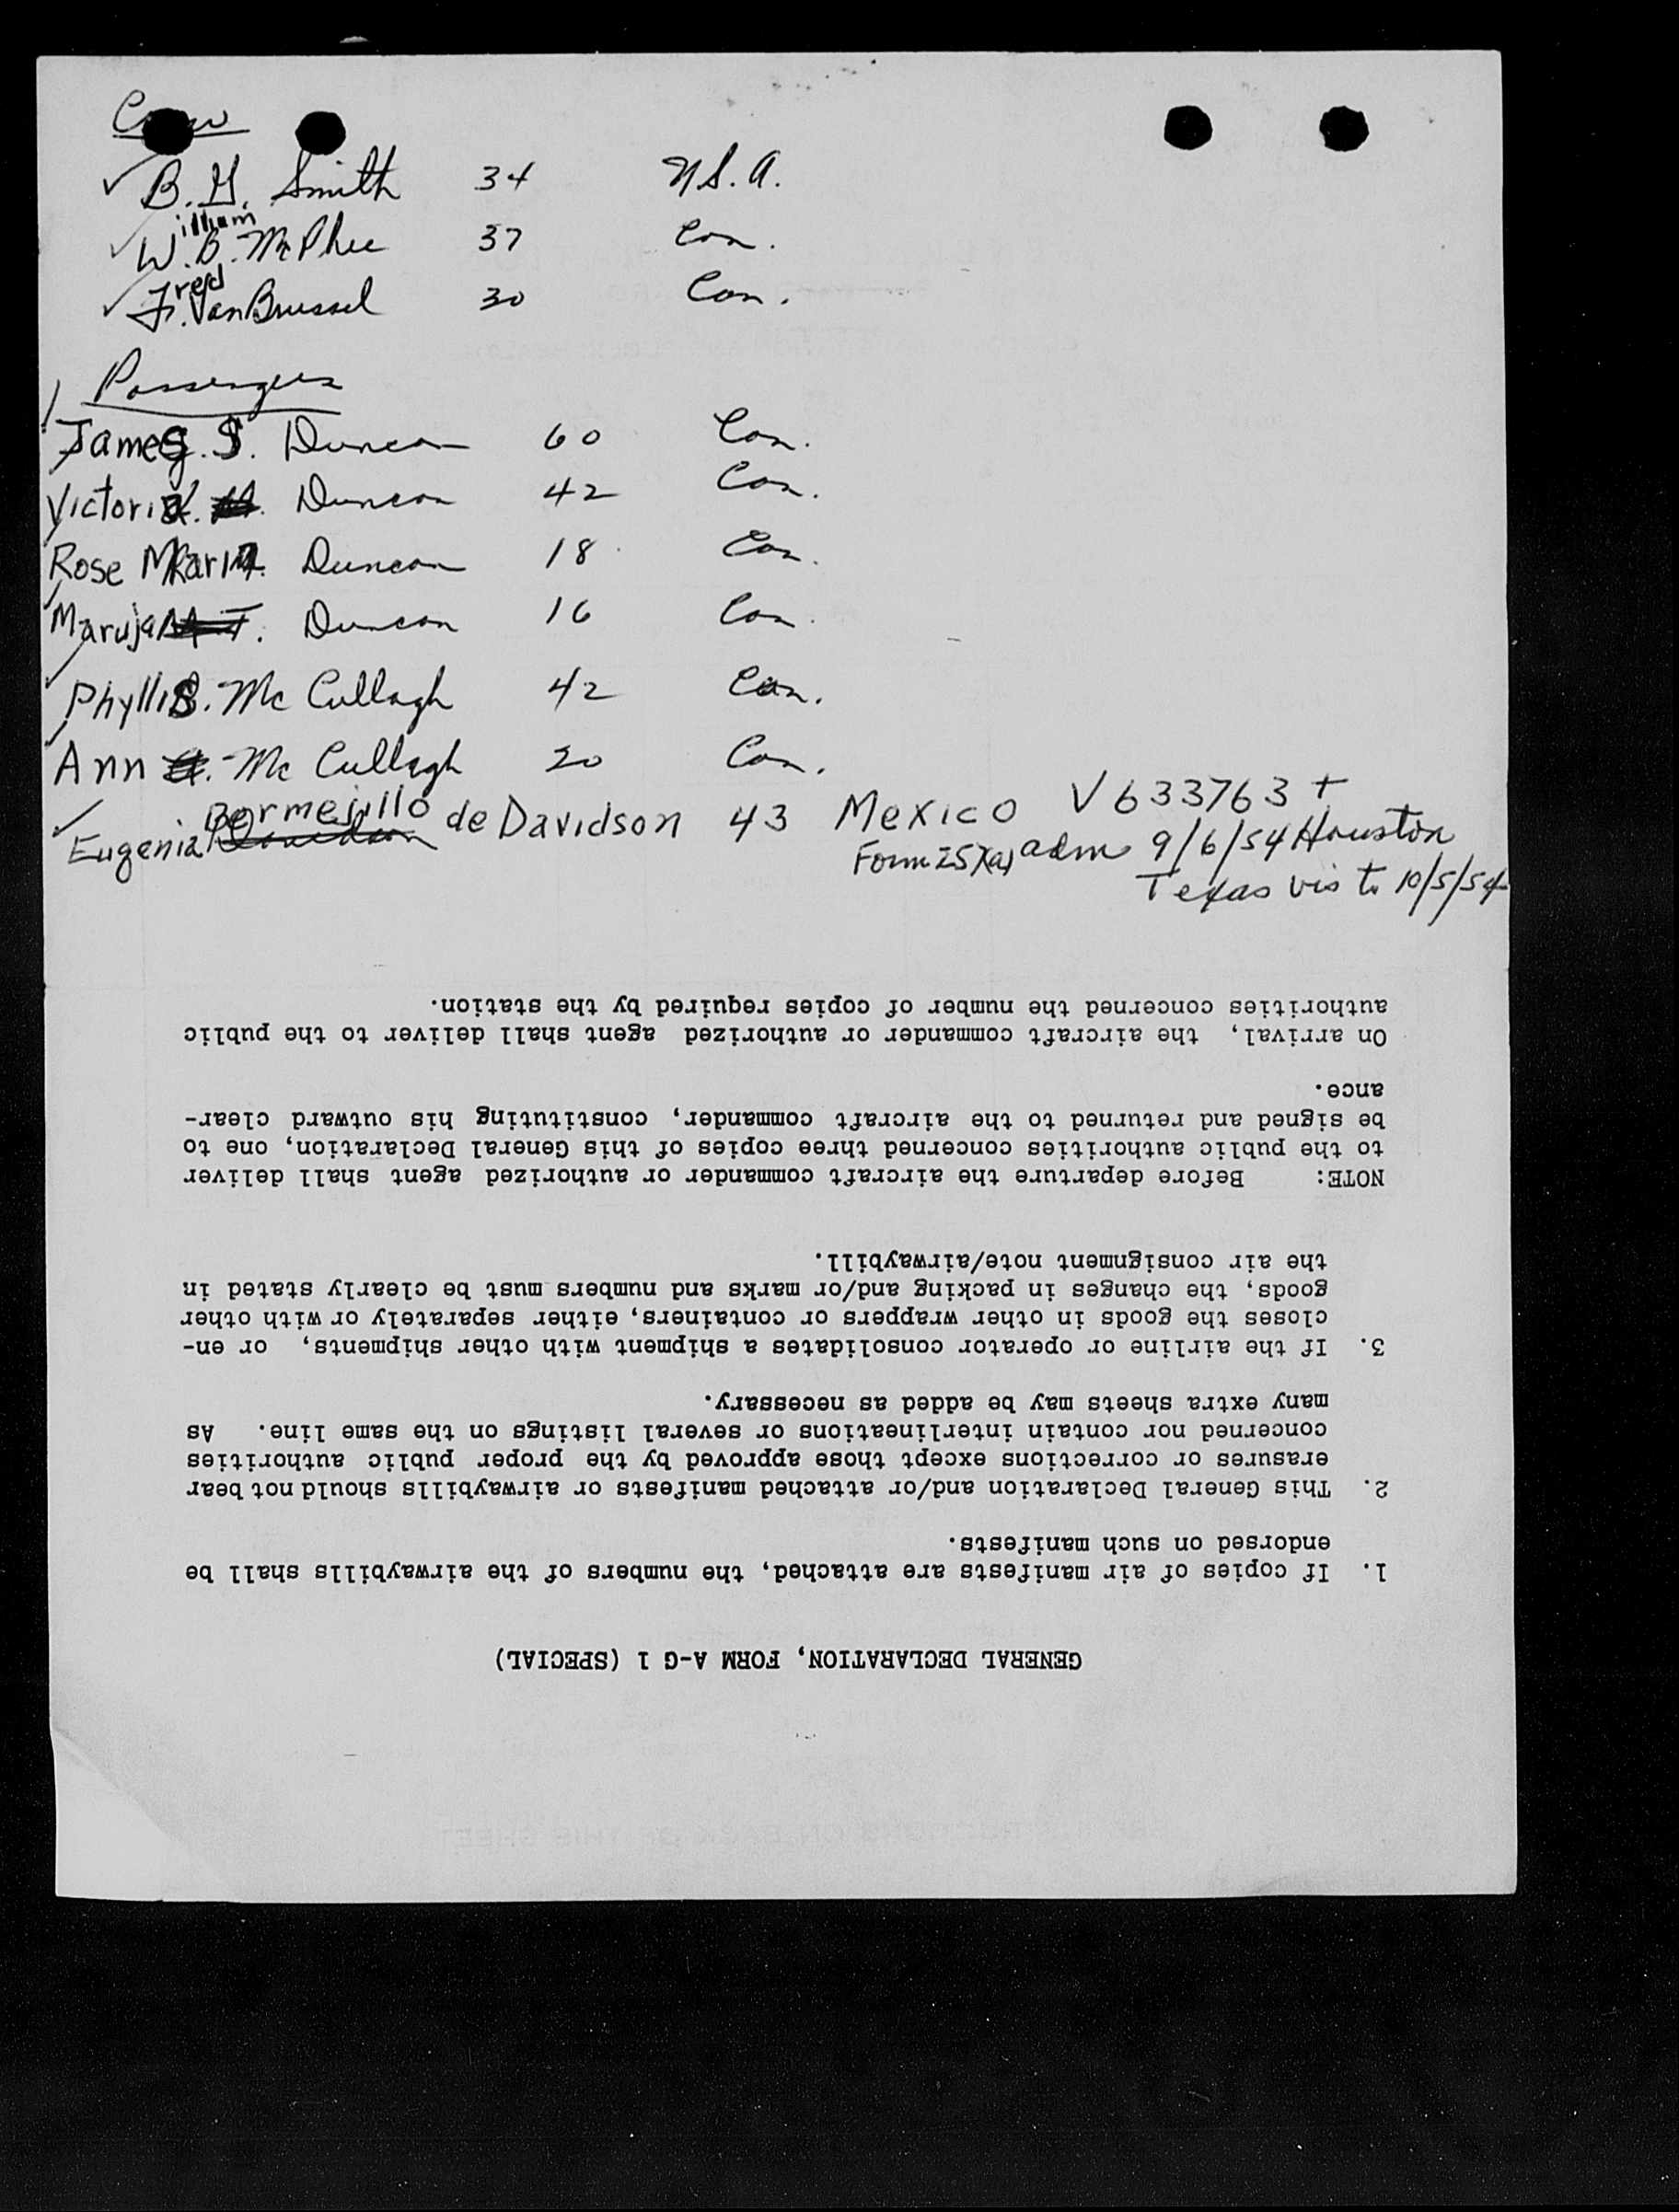 Crew
B. G. Smith 34 U.S.A.
William B. McPhee 37 Can.
Fred VanBrussel 30 Can.
Passengers
James S. Duncan 60 Can.
Victoria Duncan 42 Can.
Rose Marie Duncan 18 Can.
Maruja Duncan 16 Can.
Phyllis McCullagh 42 Can.
Ann McCullagh 20 Can.
Eugenia Bermejillo de Davidson 43 Mexico V633763 +
Form 257(a) adm 9/6/54 Houston
Texas vis to 10/5/54
GENERAL DECLARATION, FORM A-G 1 (SPECIAL)
1. If copies of air manifests are attached, the numbers of the airwaybills shall be
endorsed on such manifests.
2. This General Declaration and/or attached manifests or airwaybills should not bear
erasures or corrections except those approved by the proper public authorities
concerned nor contain interlineations or several listings on the same line. As
many extra sheets may be added as necessary.
3. If the airline or operator consolidates a shipment with other shipments, or en-
closes the goods in other wrappers or containers, either separately or with other
goods, the changes in packing and/or marks and numbers must be clearly stated in
the air consignment note/airwaybill.
NOTE: Before departure the aircraft commander or authorized agent shall deliver
to the public authorities concerned three copies of this General Declaration, one to
be signed and returned to the aircraft commander, constituting his outward clear-
ance.
On arrival, the aircraft commander or authorized agent shall deliver to the public
authorities concerned the number of copies required by the station.